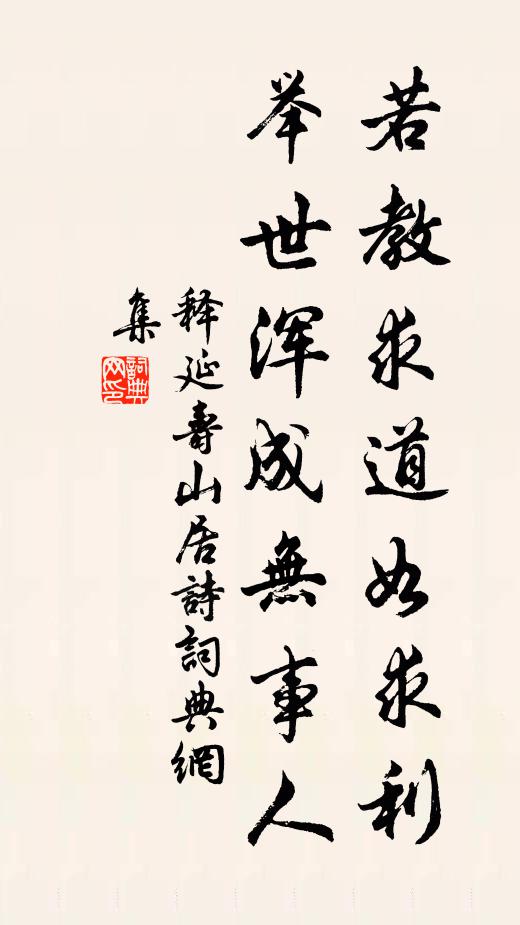 若教求道如求利
举世浑成無事人
释延壽山居詩詞典網
集
詞典
网印